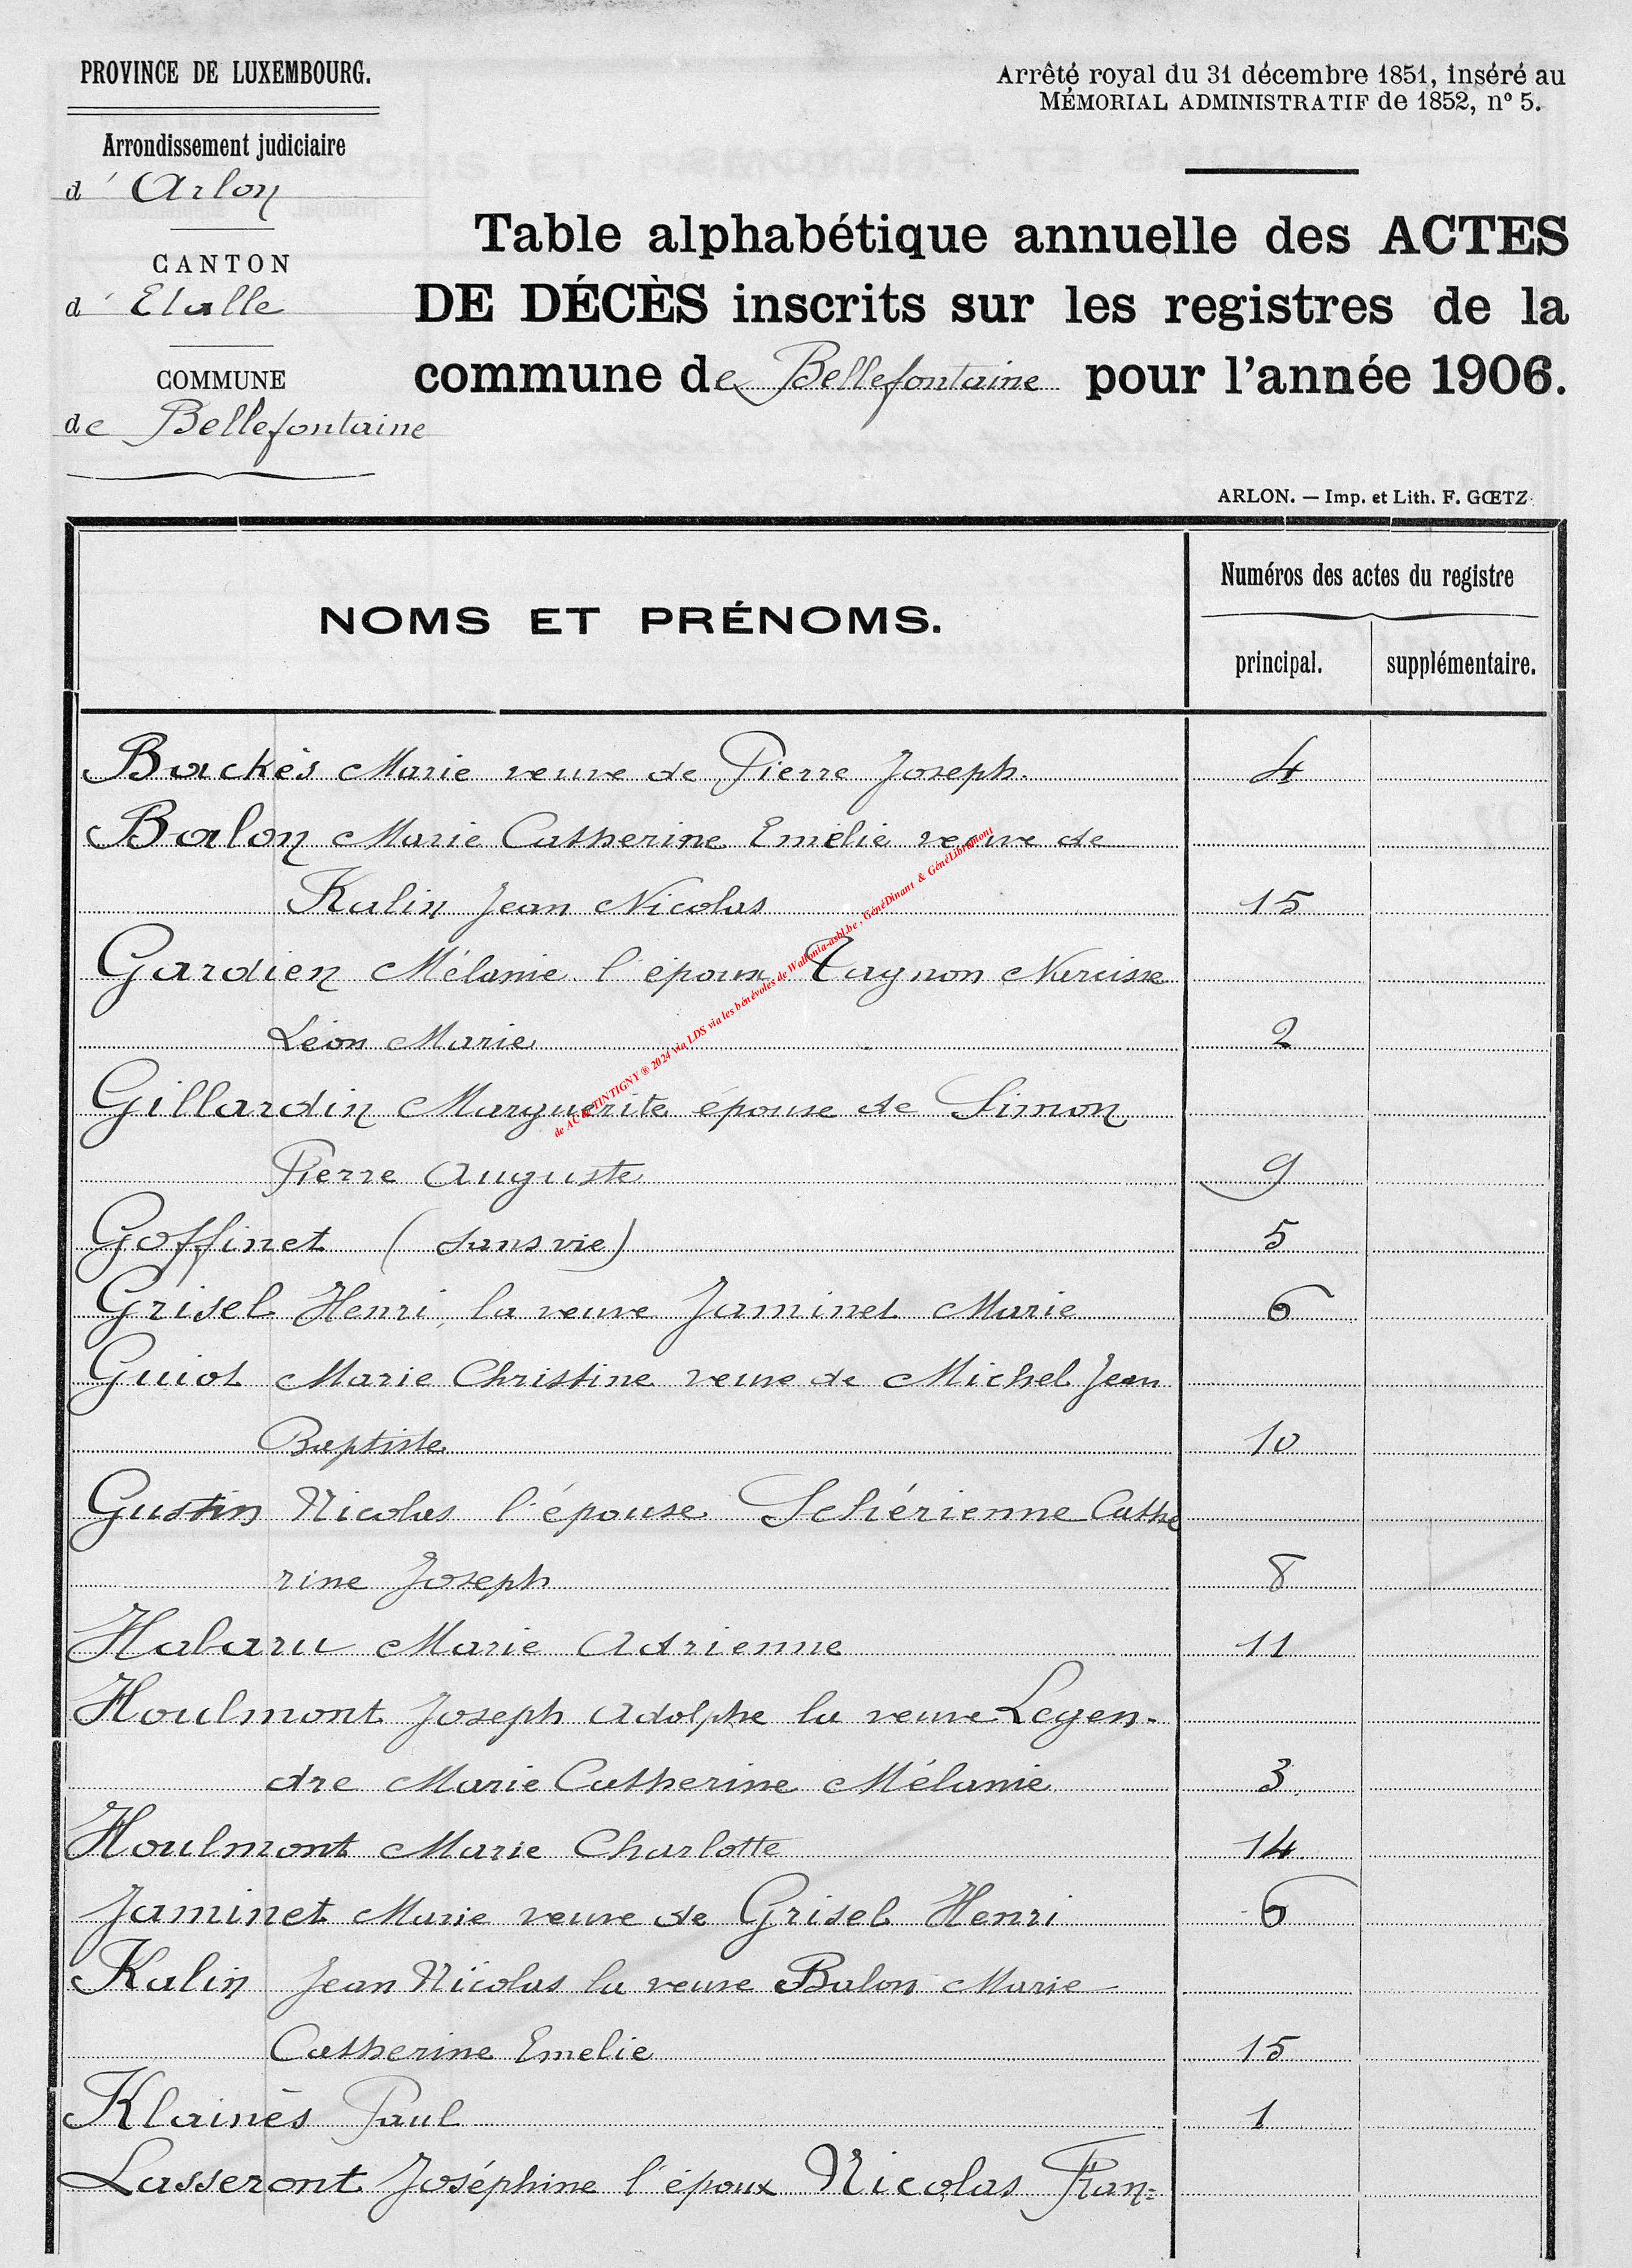 PROVINCE DE LUXEMBOURG.
Arrondissement judiciaire
d' Arlon
CANTON
d' Etalle
COMMUNE
de Bellefontaine
Arrêté royal du 31 décembre 1851, inséré au
MÉMORIAL ADMINISTRATIF de 1852, nº 5.
Table alphabétique annuelle des ACTES
DE DÉCÈS inscrits sur les registres de la
commune de Bellefontaine pour l'année 1906.
ARLON. — Imp. et Lith. F. GŒTZ
NOMS ET PRÉNOMS.
Numéros des actes du registre
principal. supplémentaire.
Backès Marie veuve de Pierre Joseph. 4
Balon Marie Catherine Emélie veuve de
Kalin Jean Nicolas 15
Gardien Mélanie l'époux Taynon Narcisse
Léon Marie 2
Gillardin Marguerite épouse de Simon
Pierre Auguste 9
Goffinet (sans vie) 5
Grisel Henri, la veuve Jaminet Marie 6
Guiot Marie Christine veuve de Michel Jean
Baptiste 10
Gustin Nicolas l'épouse Schérienne Cathe
rine Joseph 8
Habaru Marie Adrienne 11
Houlmont Joseph Adolphe la veuve Legen-
dre Marie Catherine Mélanie 3
Houlmont Marie Charlotte 14
Jaminet Marie veuve de Grisel Henri 6
Kalin Jean Nicolas la veuve Balon Marie
Catherine Emelie 15
Klainès Paul 1
Lasseront Joséphine l'époux Nicolas Fran-
de AC de TINTIGNY ® 2024 via LDS via les bénévoles de Wallonia-asbl.be , GénéDinant & GénéLibramont